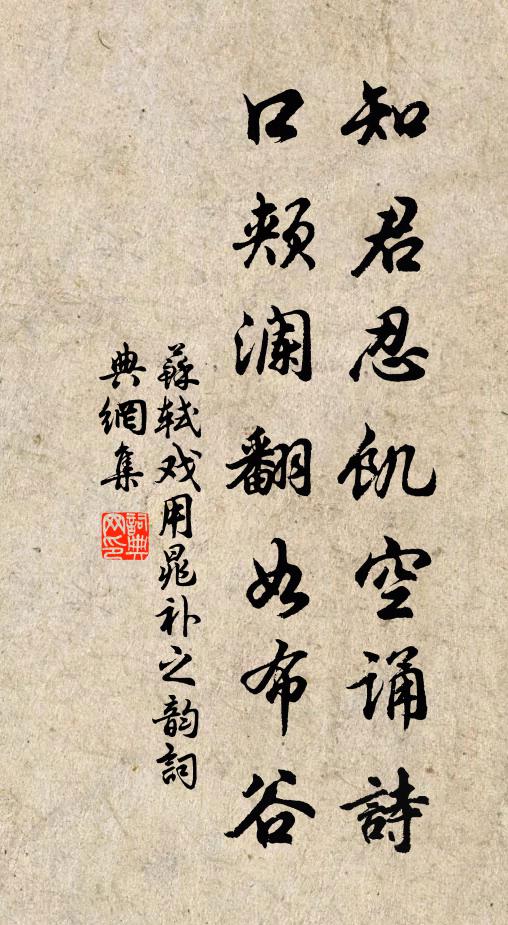 知君忍飢空誦詩
口頰瀾翻如布谷
蘇軾戏用晁补之韵詞
典網集
詞典
网印